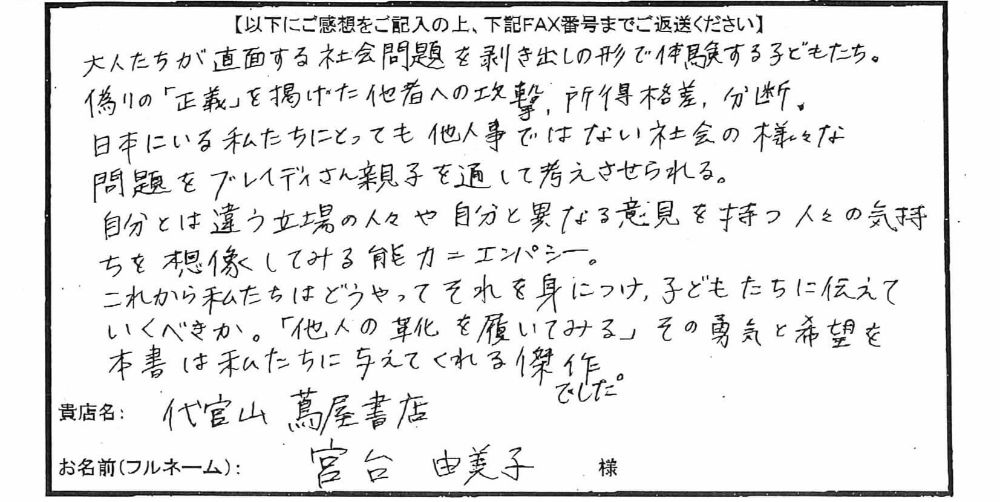 【以下にご感想をご記入の上、下記FAX番号までご返送ください】
大人たちが直面する社会問題を剥き出しの形で体験する子どもたち。
偽りの「正義」を掲げた他者への攻撃、所得格差、分断。
日本にいる私たちにとっても他人事ではない社会の様々な
問題をブレイディさん親子を通して考えさせられる。
自分とは違う立場の人々や自分と異なる意見を持つ人々の気持
ちを想像してみる能力=エンパシー。
これから私たちはどうやってそれを身につけ、子どもたちに伝えて
いくべきか。「他人の革化を履いてみる」その勇気と希望を
本書は私たちに与えてくれる傑作
でした。
貴店名: 代官山 蔦屋書店
お名前(フルネーム): 宮台 由美子 様